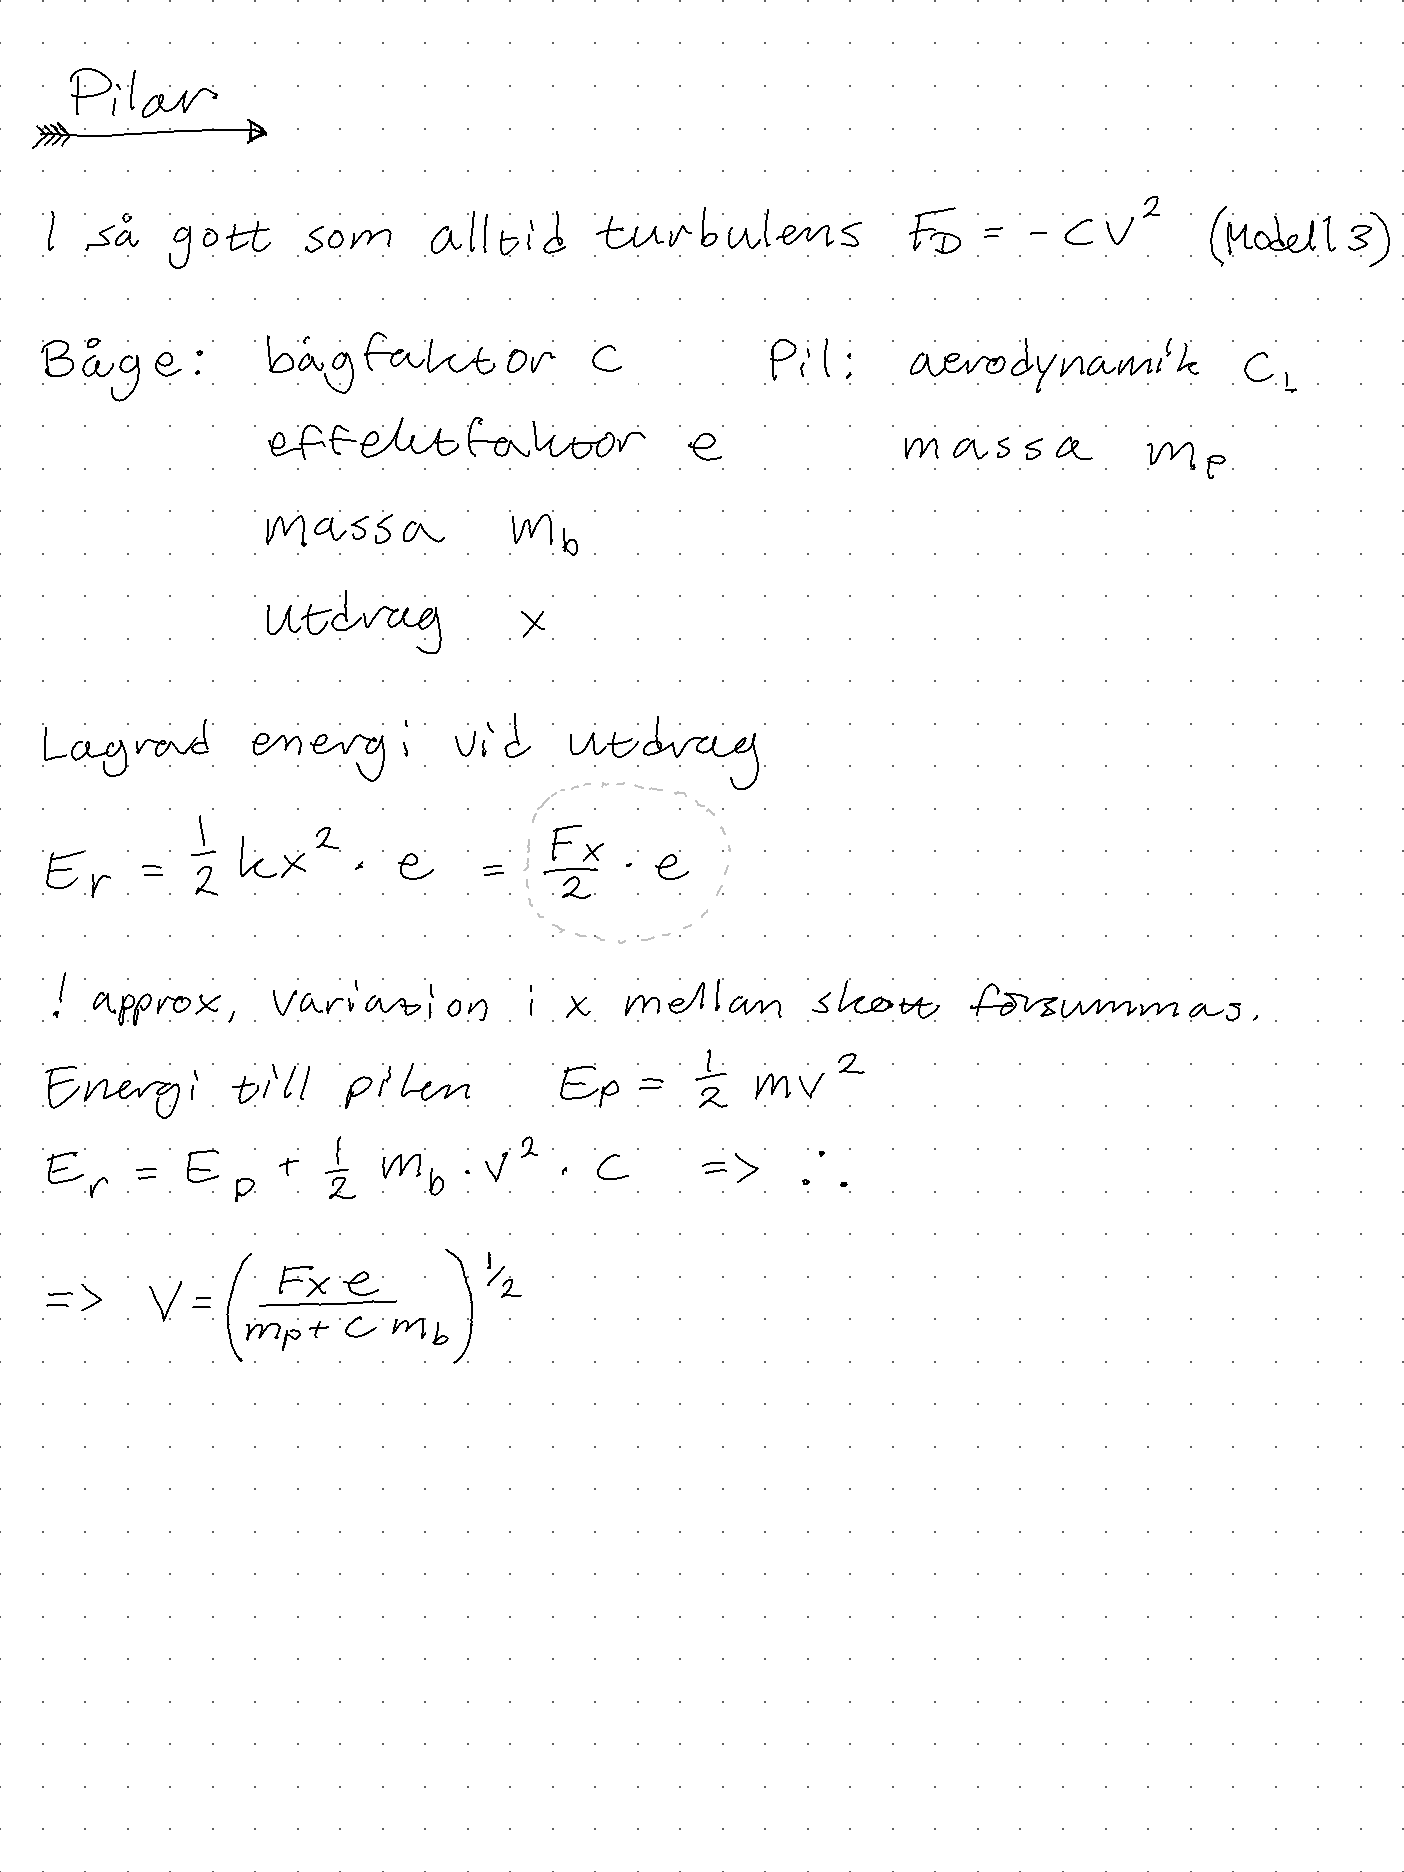 Pilar
I så gott som alltid turbulens F_D = -CV² (Modell 3)
Båge: bågfaktor C Pil: aerodynamik C_L
effektfaktor e massa m_p
massa m_b
utdrag x
Lagrad energi vid utdrag
E_r = 1/2 kx² · e = Fx/2 · e
! approx, variation i x mellan skott försummas.
Energi till pilen E_p = 1/2 mv²
E_r = E_p + 1/2 m_b · v² · C => ∴
=> V = (Fxe / (m_p + C m_b))^1/2